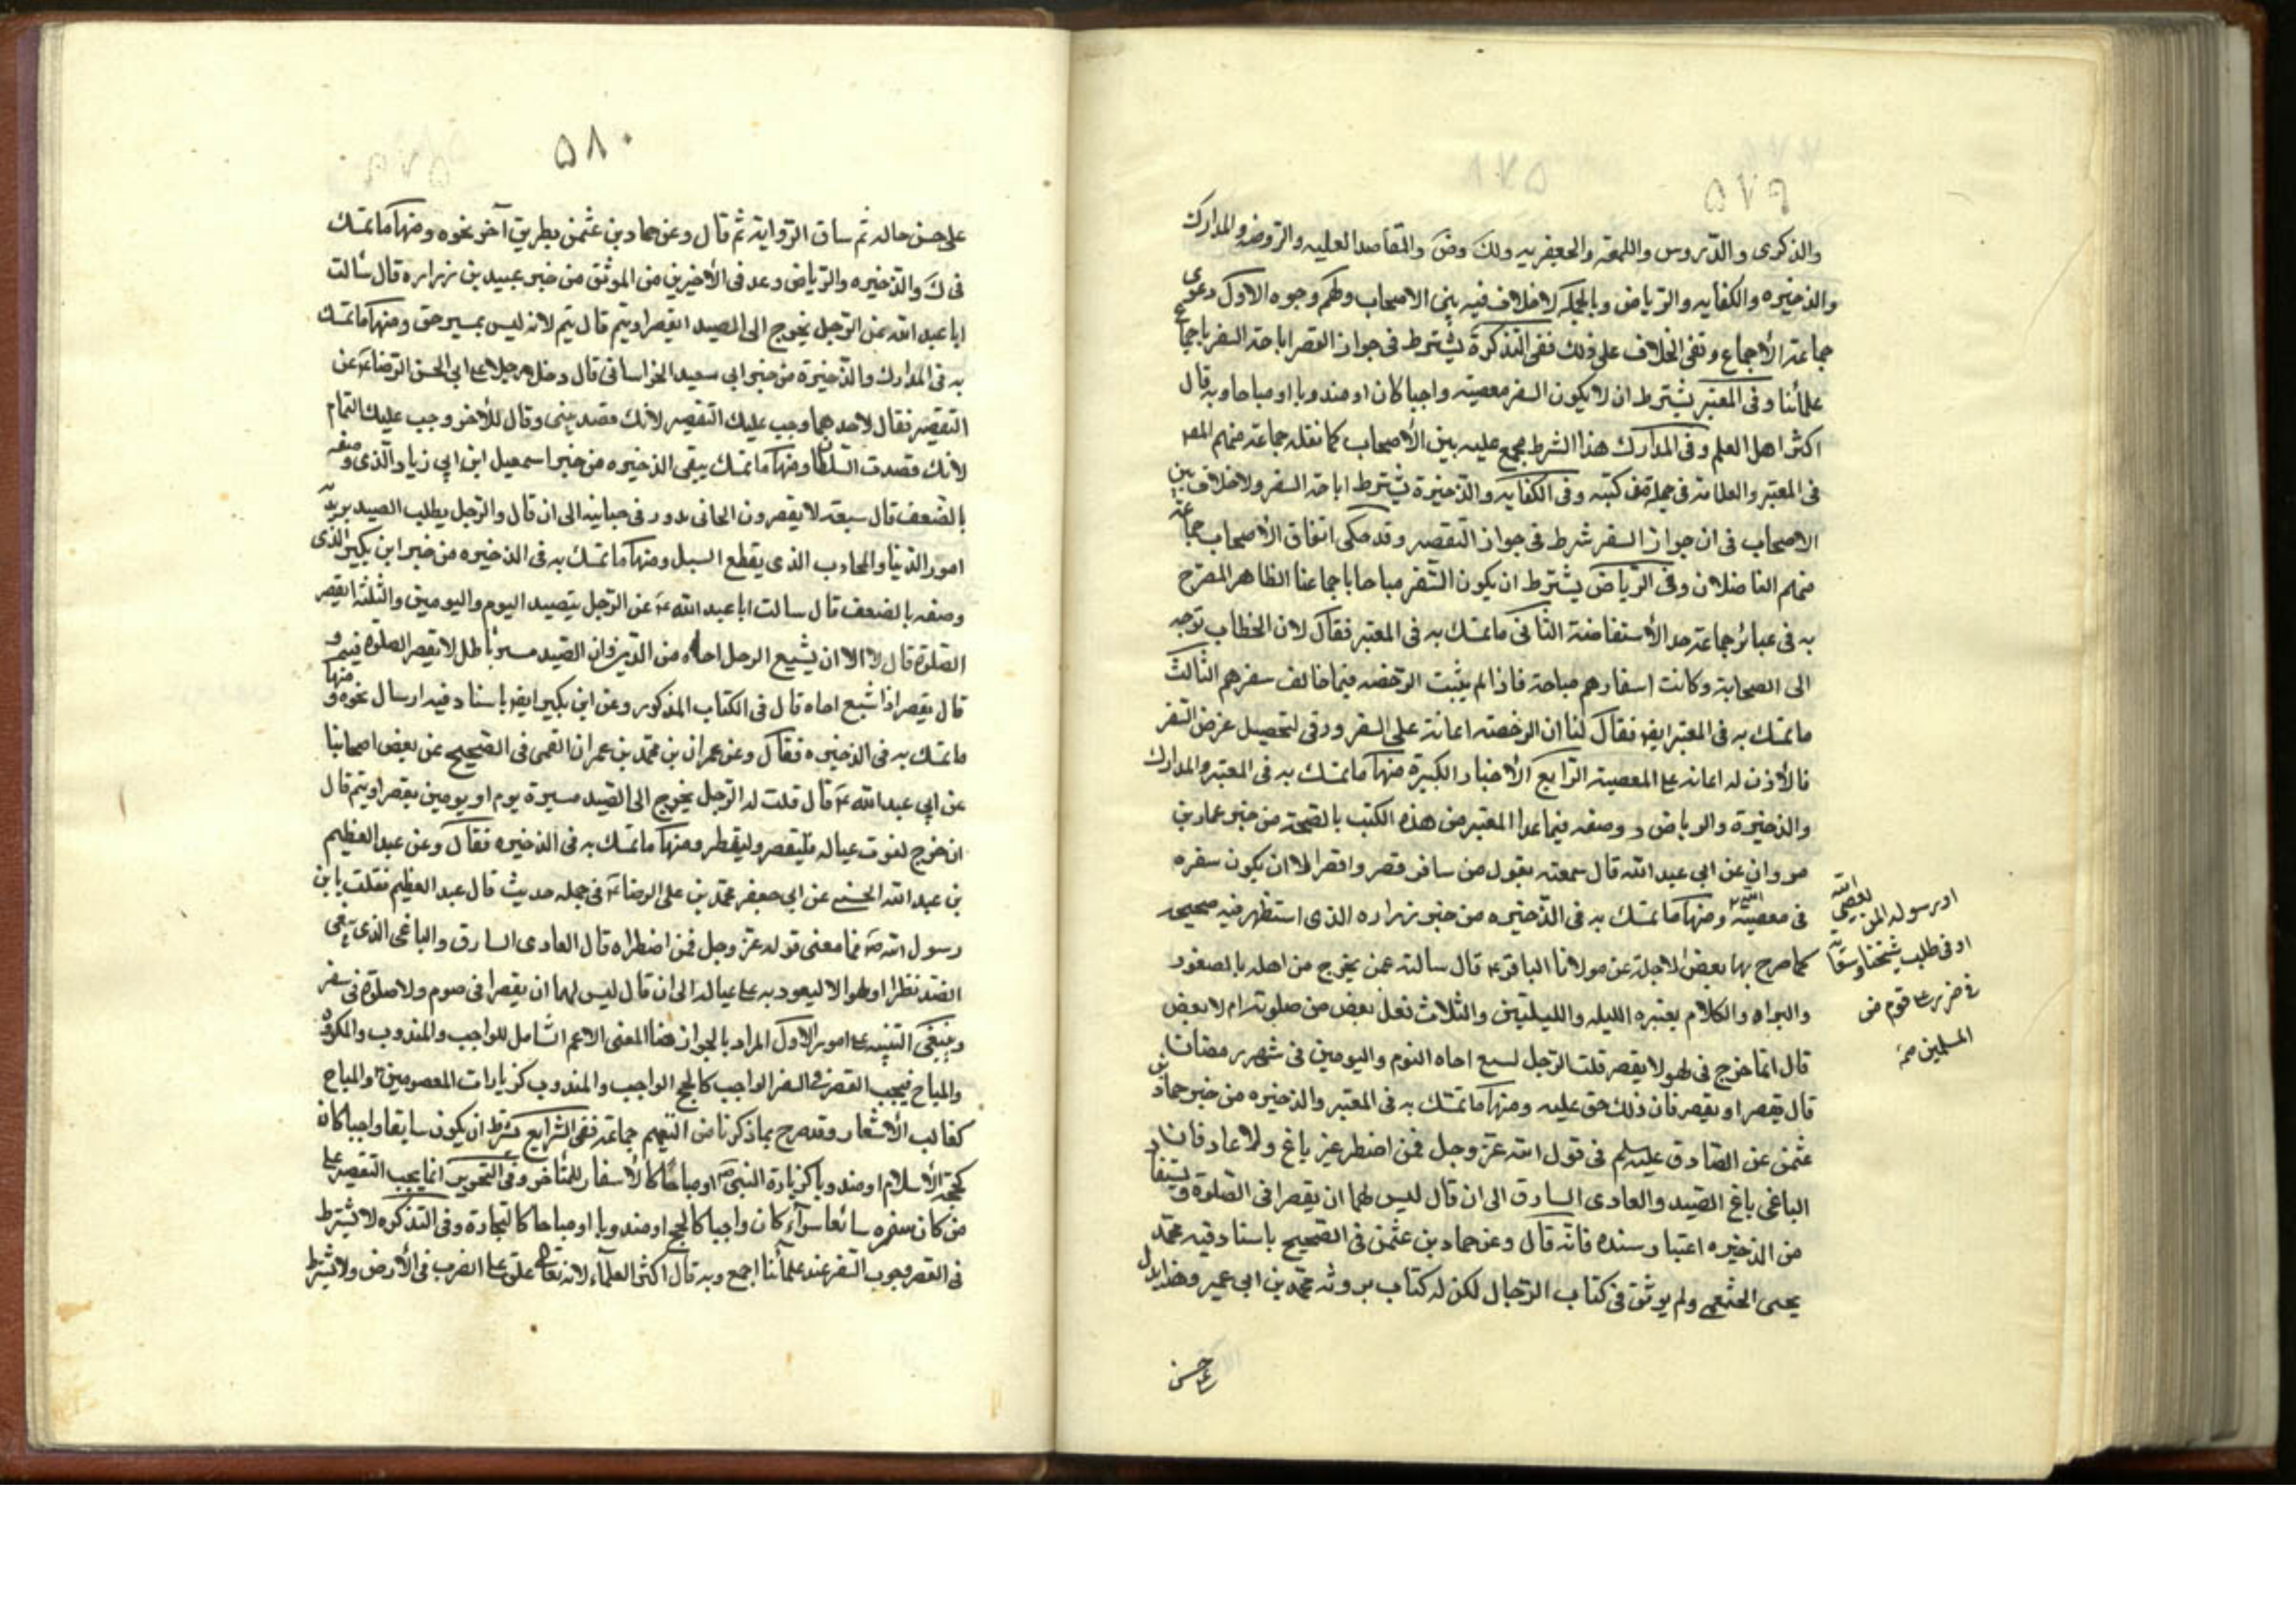 ٥٧٩
والذكرى والدروس واللمعة والجعفريه ولك وض والمقاصد العليه والروضه والمدارك
والذخيره والكفايه والرياض وبالجملة لا خلاف فيه بين الاصحاب ولهم وجوه الاول دعوى
جماعة الأجماع ونفى الخلاف على ذلك ففى التذكرة يشترط فى جواز القصر اباحة السفر باجماع
علمائنا وفى المعتبر يشترط ان لا يكون السفر معصيته واجبا كان او مندوبا او مباحا وبه قال
اكثر اهل العلم وفى المدارك هذا الشرط مجمع عليه بين الأصحاب كما نقله جماعة منهم المصر
فى المعتبر والعلامة فى جملة من كتبه وفى الكفايه والذخيرة يشترط اباحة السفر ولا خلاف بين
الاصحاب فى ان جواز السفر شرط فى جواز التقصير وقد حكى اتفاق الأصحاب جماعة
منهم الفاضلان وفى الرياض يشترط ان يكون السفر مباحا باجماعنا الظاهر المصرح
به فى عبائر جماعة حد الأستفاضة الثانى ما تمسك به فى المعتبر فقال لان الخطاب توجه
الى الصحابة وكانت اسفارهم مباحة فاذا لم يثبت الرخصه فيما خالف سفرهم الثالث
ما تمسك به فى المعتبر ايضا فقال لنا ان الرخصته اعانة على السفر ورقى لتحصيل غرض السفر
فالأذن له اعانه على المعصية الرابع الأخبار الكثيرة منها ما تمسك به فى المعتبر والمدارك
والذخيرة والرياض ووصفه فيما عدا المعتبر من هذه الكتب بالصحة من خبر عمار بن
مروان عن ابى عبد الله قال سمعته يقول من سافر قصر وافقر الا ان يكون سفره
فى معصية الله ومنها ما تمسك به فى الذخيره من خبر زراره الذى استظهر فيه صحيح
كما صرح بها بعض الاجلة عن مولانا الباقر ع قال سالته عمن يخرج من اهله بالصقور
والبراه والكلاب يعتبره الليله والليلتين والثلاث نعل بعض من صلوته ام لا بعض
قال انما خرج فى لهو لا يقصر قلت الرجل لسيع اخاه اليوم واليومين فى شهر رمضان
قال يقصر او يقصر فان ذلك حق عليه ومنها ما تمسك به فى المعتبر والذخيره من خبر حماد بن
عثمن عن الصادق عليه سلم فى قول الله عز وجل فمن اضطر غير باغ ولا عاد قال
الباغى باغ الصيد والعادى السارق الى ان قال ليس لهما ان يقصرا فى الصلوة ويستفاد
من الذخيره اعتبار سنده فانه قال وعن حماد بن عثمن فى الصحيح باسناد فيه محمد
يحيى الخثعمى ولم يوثق فى كتاب الرجال لكن له كتاب يرويه محمد بن ابى عمير وهذا يدل
او رسوله المن يعصى الله
او فى طلب شحناء وسعاية
فى ضرر على قوم من
المسلمين صح
على حسن
٥٨٠
على حسن حاله ثم ساق الرواية ثم قال وعن حماد بن عثمن بطريق آخر نحوه ومنها ما تمسك
فى ك والذخيره والرياض وعد فى الأخيرين من الموثق من خبر عبيد بن زراره قال سألت
ابا عبد الله عن الرجل يخرج الى الصيد ايقصر او يتم قال يتم لانه ليس بمسير حق ومنها ما تمسك
به فى المدارك والذخيرة من خبر ابى سعيد الخراسانى قال دخل رجلا على ابى الحسن الرضا ع عن
التقصير فقال لاحدهما وجب عليك التقصير لأنك قصدتنى وقال للأخر وجب عليك التمام
لأنك قصدت السلطان ومنها ما تمسك به فى الذخيره من خبر اسمعيل ابن ابى زياد الذى وصفه
بالضعف قال سبعة لا يقصرون الجابى يدور فى جبايته الى ان قال والرجل يطلب الصيد يريد به
امور الدنيا والمحارب الذى يقطع السبل ومنها ما تمسك به فى الذخيره من خبر ابن بكير الذى
وصفه بالضعف قال سالت ابا عبد الله ع عن الرجل يتصيد اليوم واليومين والثلثه ايقصر
الصلوة قال لا الا ان يشيع الرجل اخاه من الدين وان الصيد مسير باطل لا يقصر الصلوة فيه و
قال يقصر اذا شيع اخاه قال فى الكتاب المذكور وعن ابن بكير ايضا باسناد فيه ارسال نحوه ومنها
ما تمسك به فى الذخيره فقال وعن عمران بن محمد بن عمران القمى فى الصحيح عن بعض اصحابنا
عن ابى عبد الله ع قال قلت له الرجل يخرج الى الصيد مسيرة يوم او يومين يقصر او يتم قال
ان خرج لقوت عياله فليقصر وليفطر ومنها ما تمسك به فى الذخيره فقال وعن عبد العظيم
بن عبد الله الحسنى عن ابى جعفر محمد بن على الرضا ع فى جمله حديث قال عبد العظيم فقلت يا بن
رسول الله ص فما معنى قوله عز وجل فمن اضطر اه قال العادى السارق والباغى الذى يبغى
الصيد نظرا او لهوا لا ليعود به على عياله الى ان قال ليس لهما ان يقصرا فى صوم ولا صلوة فى سفر
وينبغى التنبيه على امور الاول المراد بالجواز هنا المعنى الاعم الشامل للواجب والمندوب والمكروه
والمباح فيجب القصر فى السفر الواجب كالحج الواجب والمندوب كزيارات المعصومين والمباح
كغالب الأسفار وقد صرح بما ذكرنا من التعميم جماعة ففى الشرايع يشترط ان يكون سايغا واجبا كان
كحجة الأسلام او مندوبا كزيارة النبى ص او مباحا كالأسفار للمتأخر وفى التحرير انما يجب التقصير على
من كان سفره سائغا سوآء كان واجبا كالحج او مندوبا او مباحا كالتجارة وفى التذكره لا يشترط
فى القصر وجوب السفر عند علمآئنا اجمع وبه قال اكثر العلمآء لانه تعالى علق على الضرب فى الأرض ولا يشترط